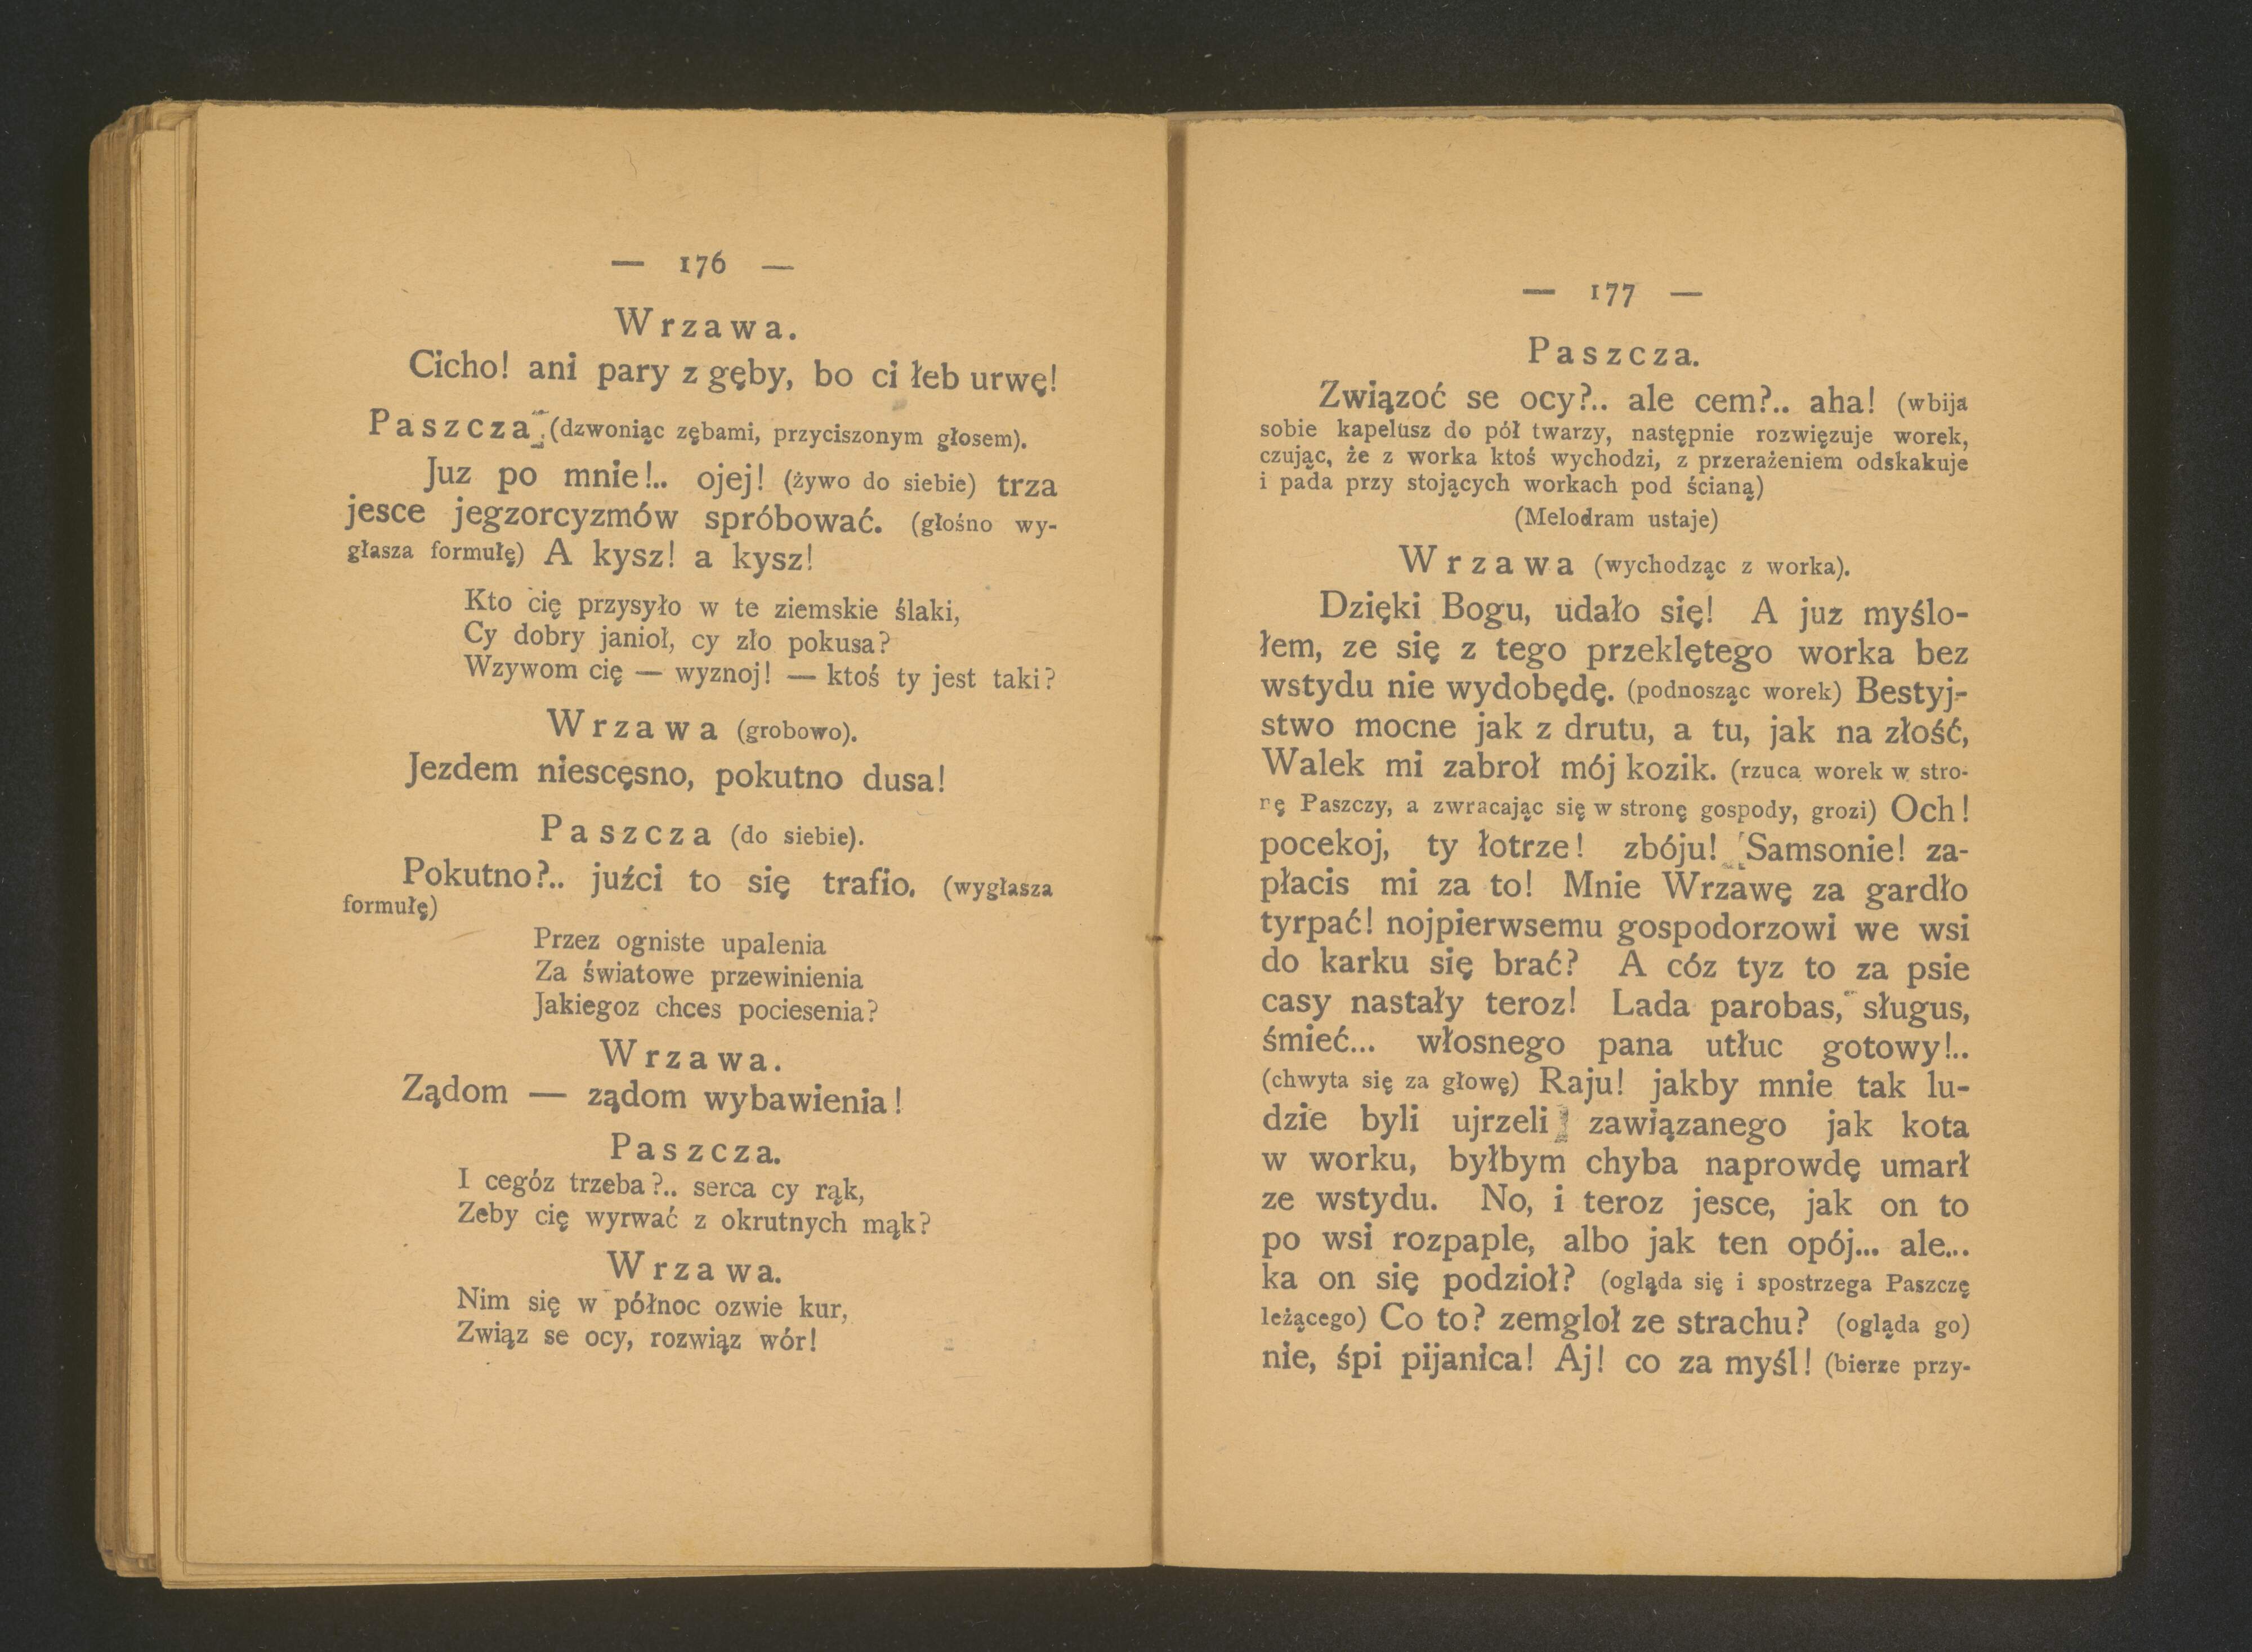 — 176 —
Wrzawa.
Cicho! ani pary z gęby, bo ci łeb urwę!
Paszcza (dzwoniąc zębami, przyciszonym głosem).
Juz po mnie!.. ojej! (żywo do siebie) trza
jesce jegzorcyzmów spróbować. (głośno wy-
głasza formułę) A kysz! a kysz!
Kto cię przysyło w te ziemskie ślaki,
Cy dobry janioł, cy zło pokusa?
Wzywom cię — wyznoj! — ktoś ty jest taki?
Wrzawa (grobowo).
Jezdem niescęsno, pokutno dusa!
Paszcza (do siebie).
Pokutno?.. juźci to się trafio. (wygłasza
formułę)
Przez ogniste upalenia
Za światowe przewinienia
Jakiegoz chces pociesenia?
Wrzawa.
Ządom — ządom wybawienia!
Paszcza.
I cegóz trzeba?.. serca cy rąk,
Zeby cię wyrwać z okrutnych mąk?
Wrzawa.
Nim się w północ ozwie kur,
Związ se ocy, rozwiąz wór!
— 177 —
Paszcza.
Związoć se ocy?.. ale cem?.. aha! (wbija
sobie kapelusz do pół twarzy, następnie rozwięzuje worek,
czując, że z worka ktoś wychodzi, z przerażeniem odskakuje
i pada przy stojących workach pod ścianą)
(Melodram ustaje)
Wrzawa (wychodząc z worka).
Dzięki Bogu, udało się! A juz myślo-
łem, ze się z tego przeklętego worka bez
wstydu nie wydobędę. (podnosząc worek) Bestyj-
stwo mocne jak z drutu, a tu, jak na złość,
Walek mi zabroł mój kozik. (rzuca worek w stro-
nę Paszczy, a zwracając się w stronę gospody, grozi) Och!
pocekoj, ty łotrze! zbóju! Samsonie! za-
płacis mi za to! Mnie Wrzawę za gardło
tyrpać! nojpierwsemu gospodorzowi we wsi
do karku się brać? A cóz tyz to za psie
casy nastały teroz! Lada parobas, sługus,
śmieć... włosnego pana utłuc gotowy!..
(chwyta się za głowę) Raju! jakby mnie tak lu-
dzie byli ujrzeli zawiązanego jak kota
w worku, byłbym chyba naprowdę umarł
ze wstydu. No, i teroz jesce, jak on to
po wsi rozpaple, albo jak ten opój... ale...
ka on się podzioł? (ogląda się i spostrzega Paszczę
leżącego) Co to? zemgloł ze strachu? (ogląda go)
nie, śpi pijanica! Aj! co za myśl! (bierze przy-